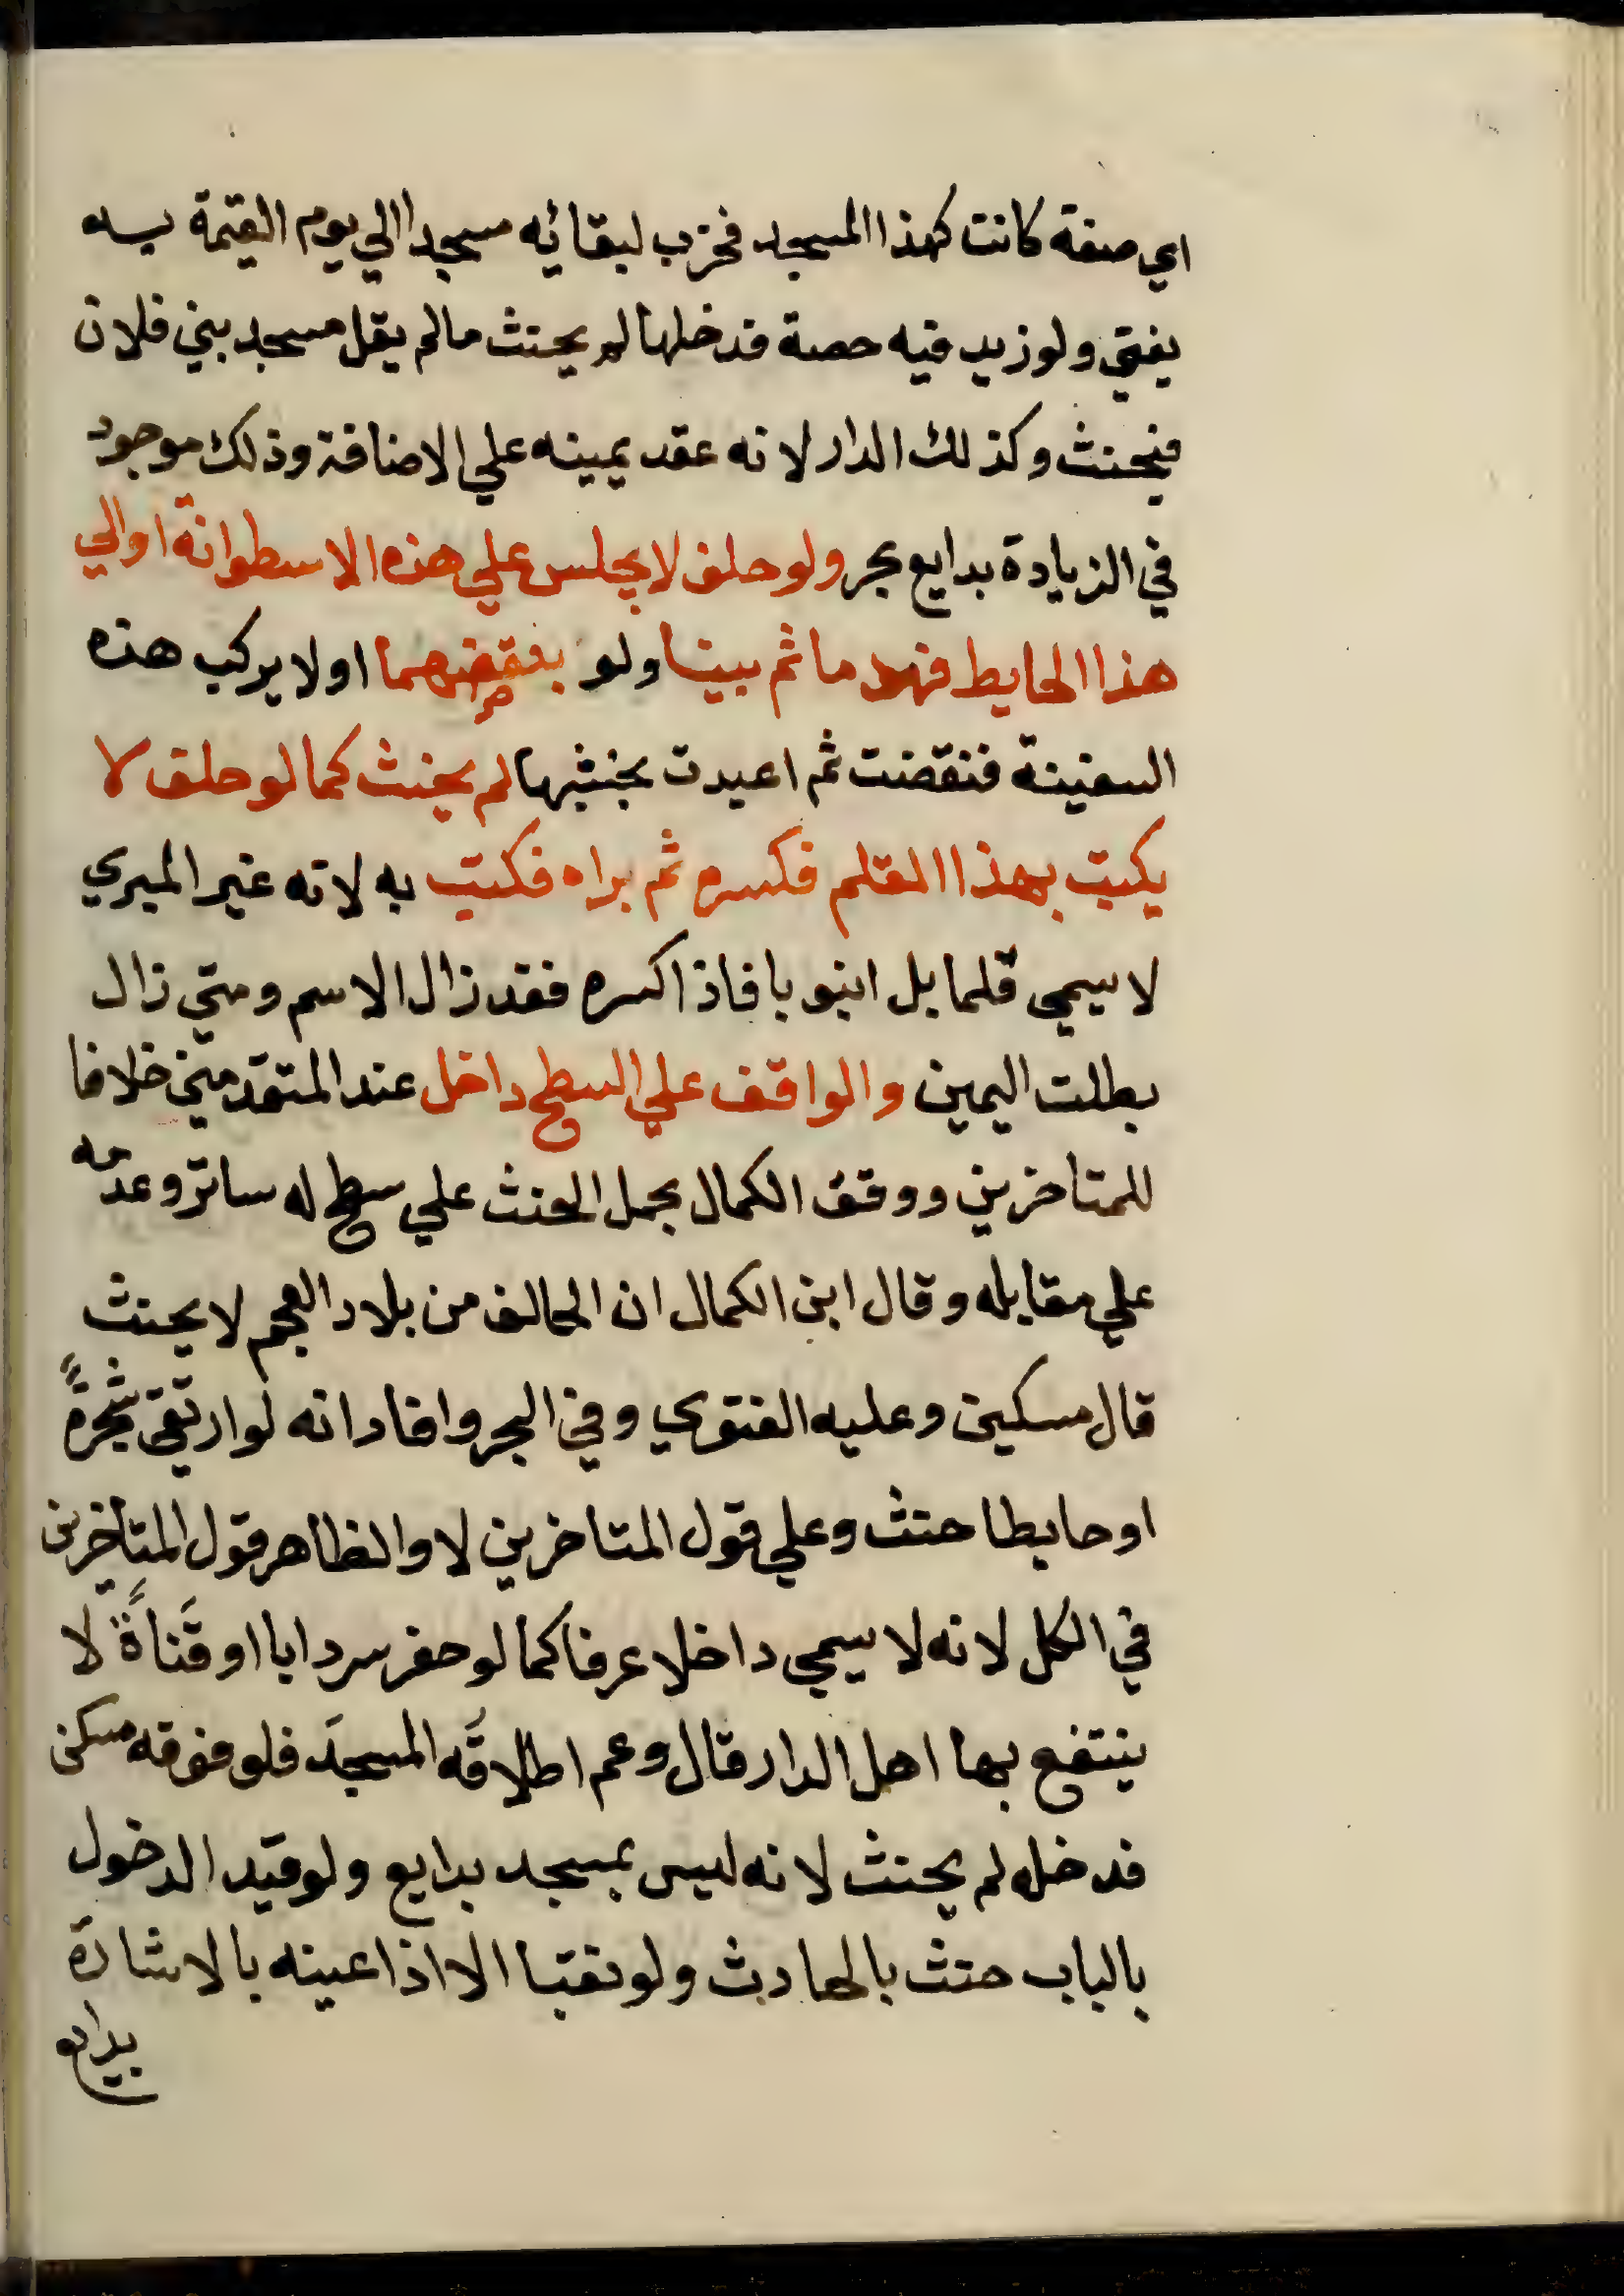 اي صفة كانت كهذا المسجد فخرب لبقائه مسجدا الي يوم القيمة به
يفتي ولو زيد فيه حصة فدخلها لم يحنث مالم يقل مسجد بني فلان
فيحنث وكذلك الدار لانه عقد يمينه علي الاضافة وذلك موجود
في الزيادة بدايع بحر ولو حلف لا يجلس علي هذه الاسطوانة او الي
هذا الحايط فهدما ثم بنيا ولو بنقضهما او لا يركب هذه
السفينة فنقضت ثم اعيدت بخشبها لم يحنث كما لو حلف لا
يكتب بهذا القلم فكسره ثم براه فكتب به لانه غير المبري
لا يسمي قلما بل انبوبا فاذا كسره فقد زال الاسم ومتي زال
بطلت اليمين والواقف علي السطح داخل عند المتقدمين خلافا
للمتاخرين ووفق الكمال بحمل الحنث علي سطح له ساتر وعدمه
علي مقابله وقال ابن الكمال ان الحالف من بلاد العجم لا يحنث
قال مسكين وعليه الفتوي وفي البحر وافاد انه لو ارتقي شجرة
او حايطا حنث وعلي قول المتاخرين لا والظاهر قول المتاخرين
في الكل لانه لا يسمي داخلا عرفا كما لو حفر سردابا او قناة لا
ينتفع بها اهل الدار قال وعم اطلاقه المسجد فلو فوقه مسكن
فدخله لم يحنث لانه ليس بمسجد بدايع ولو قيد الدخول
بالباب حنث بالحادث ولو نقبا الا اذا عينه بالاشارة
بدايع